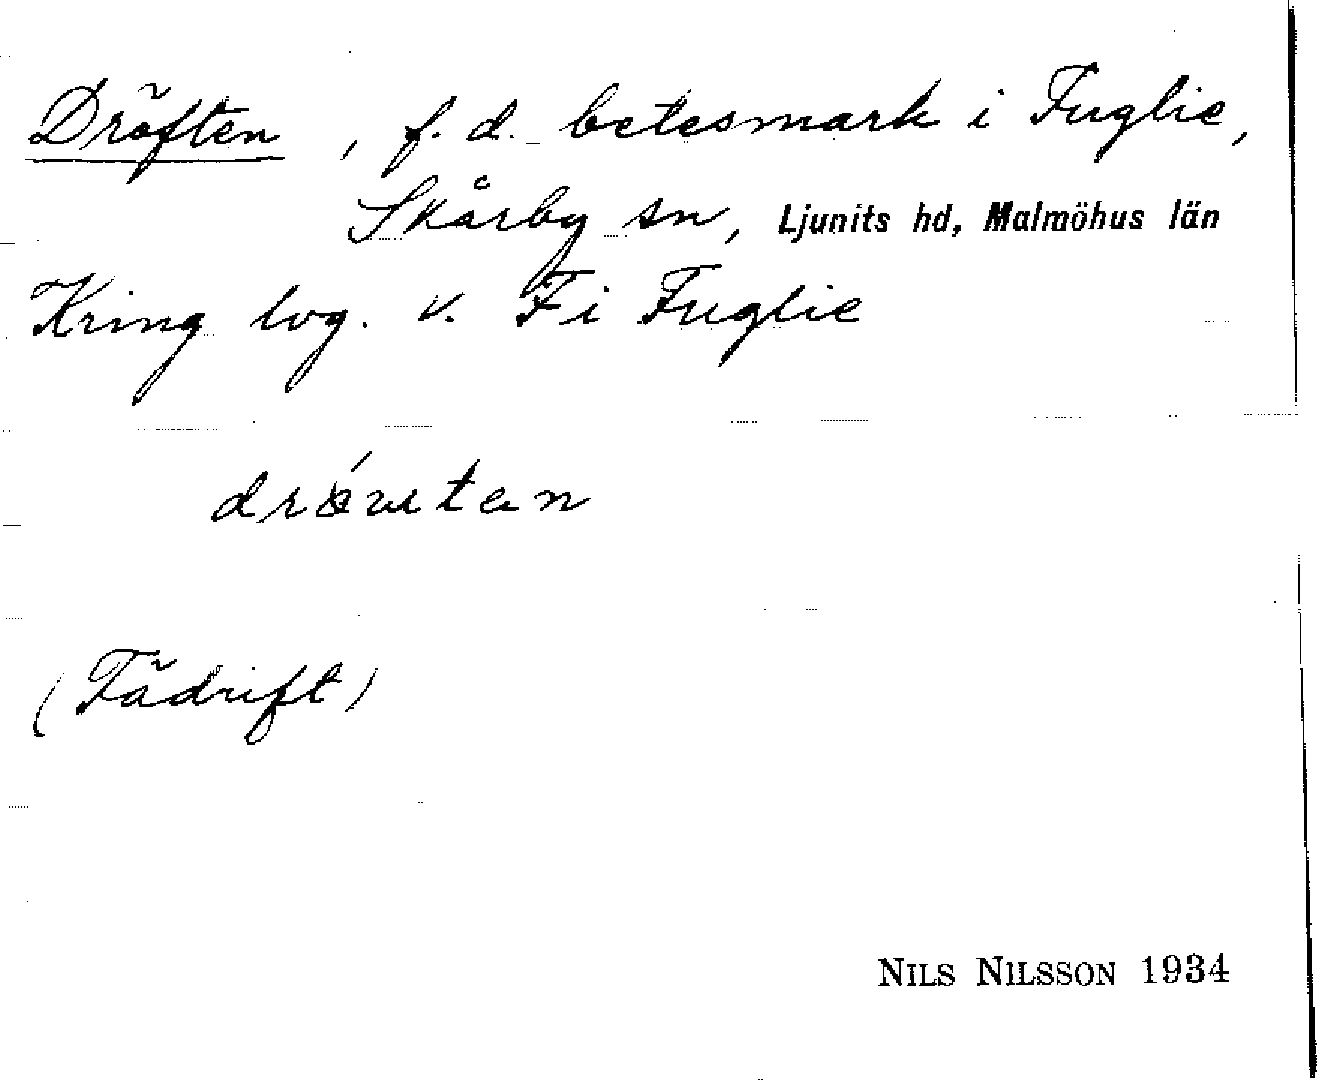 Dröften, f. d. betesmark i Fuglie,
Skårby sn, Ljunits hd, Malmöhus län
Kring lvg. v. F i Fuglie
(Fädrift)
NILS NILSSON 1934